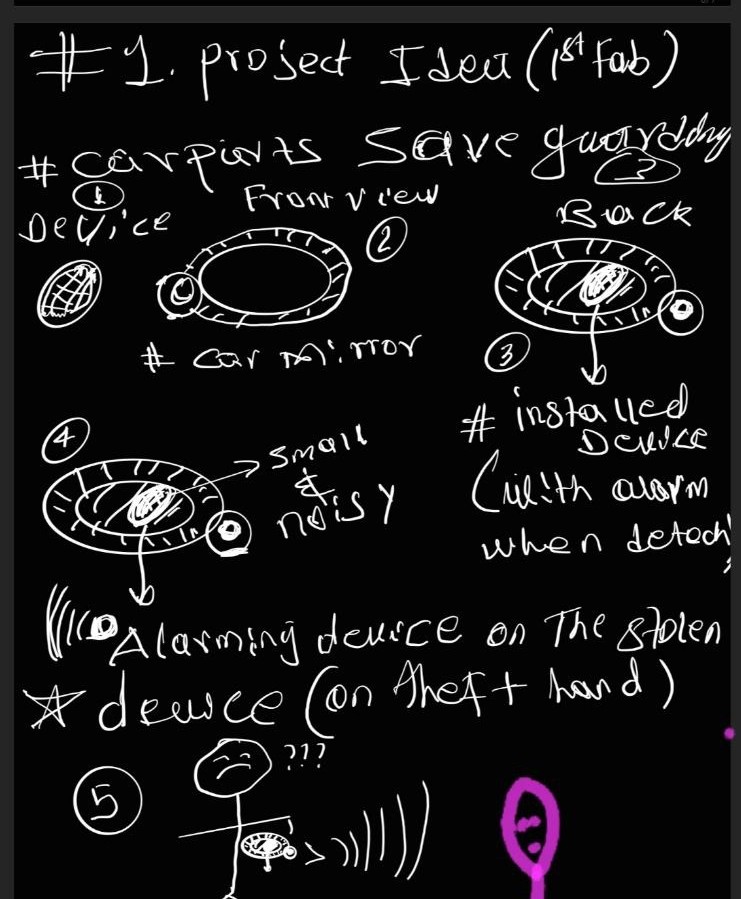 #1. project Idea (1st Fab)
# carparts save guardding
① Device
Front view
②
# car Mirror
②
Back
③
# installed
Device
(with alarm
when detach
④
→ small
&
noisy
Alarming device on The stolen
☆ device (on theft hand)
⑤
???